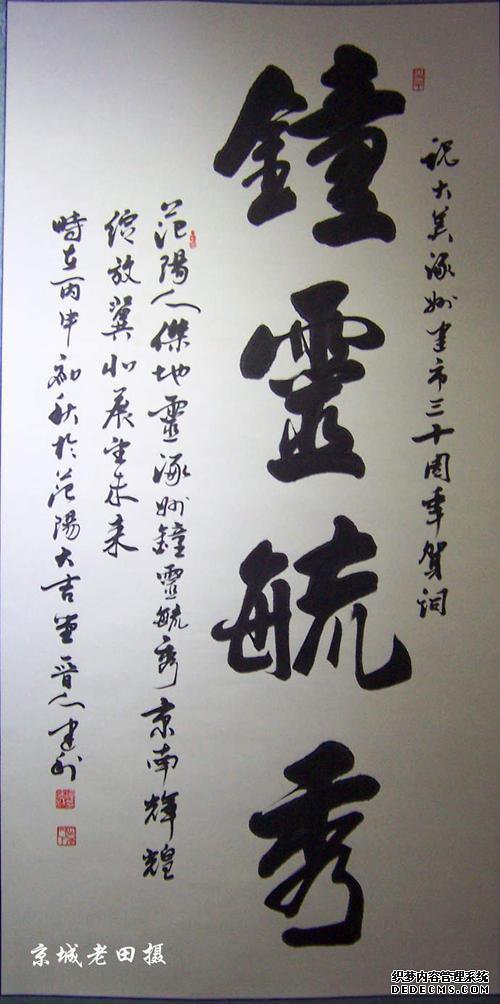 祝大美涿州建市三十周年贺词
鐘靈毓秀
范陽人傑地靈涿州鐘靈毓秀京南輝煌
绽放冀北展望未来
時在丙申初秋於范陽大吉堂晋人建利
京城老田摄
织梦内容管理系统
DEDECMS.COM